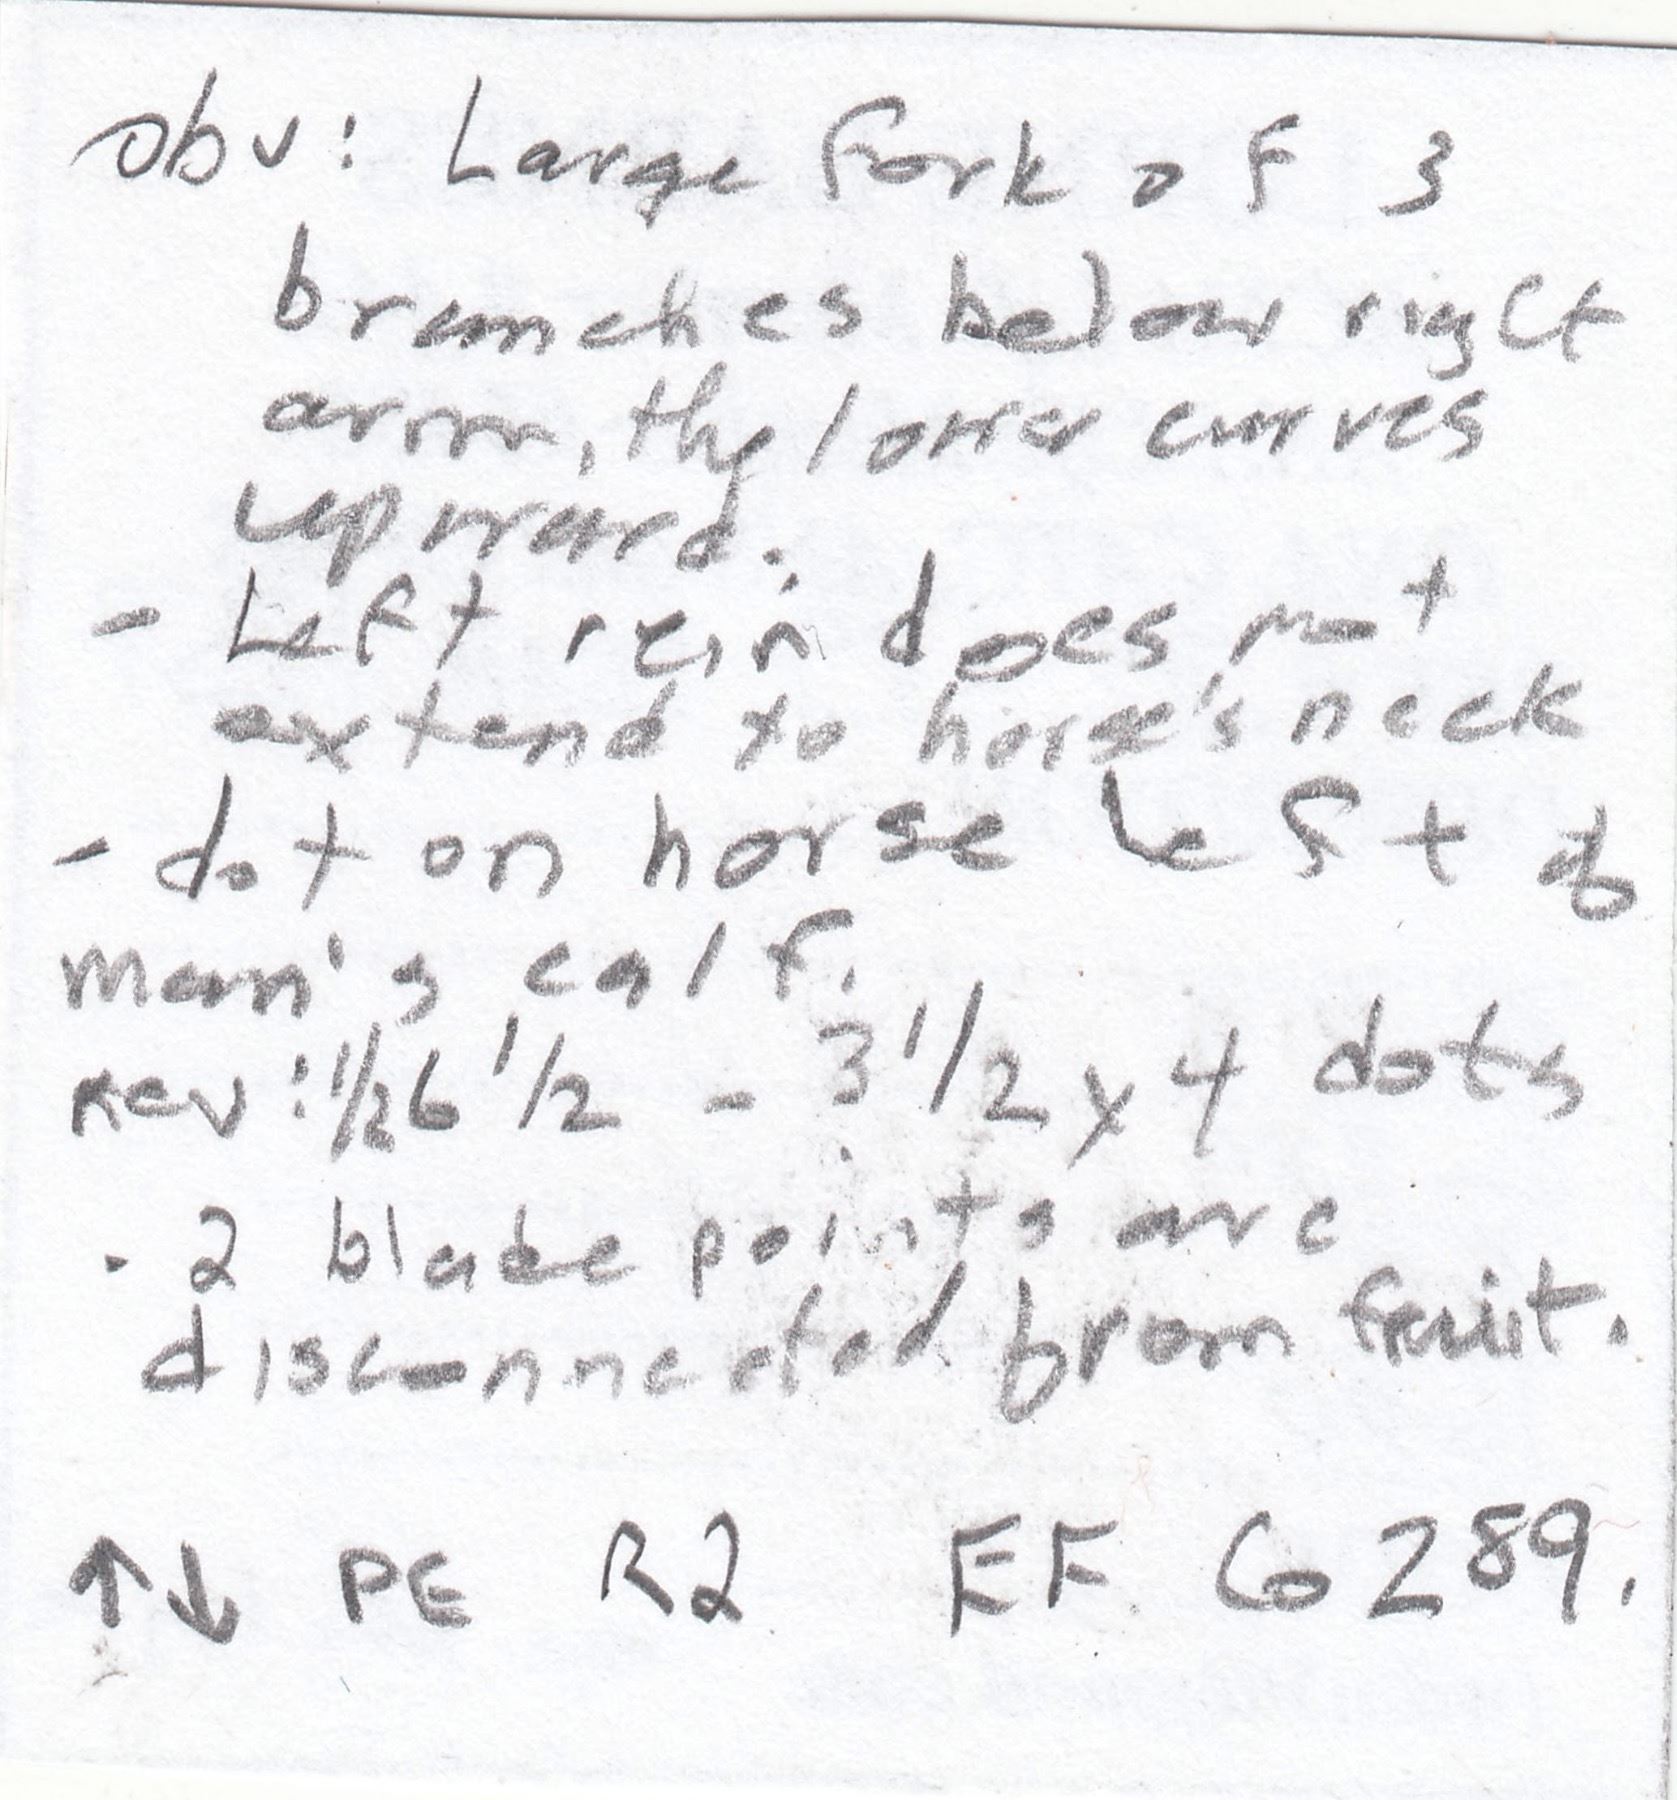 obv: Large fork of 3
branches below right
arm, the lower curves
upward.
- Left rein does not
extend to horse's neck
- dot on horse left of
man's calf.
Rev: 1/2 6 1/2 - 3 1/2 x 4 dots
. 2 blade points are
disconnected from fruit.
↑↓ PE R2 EF Co 289.